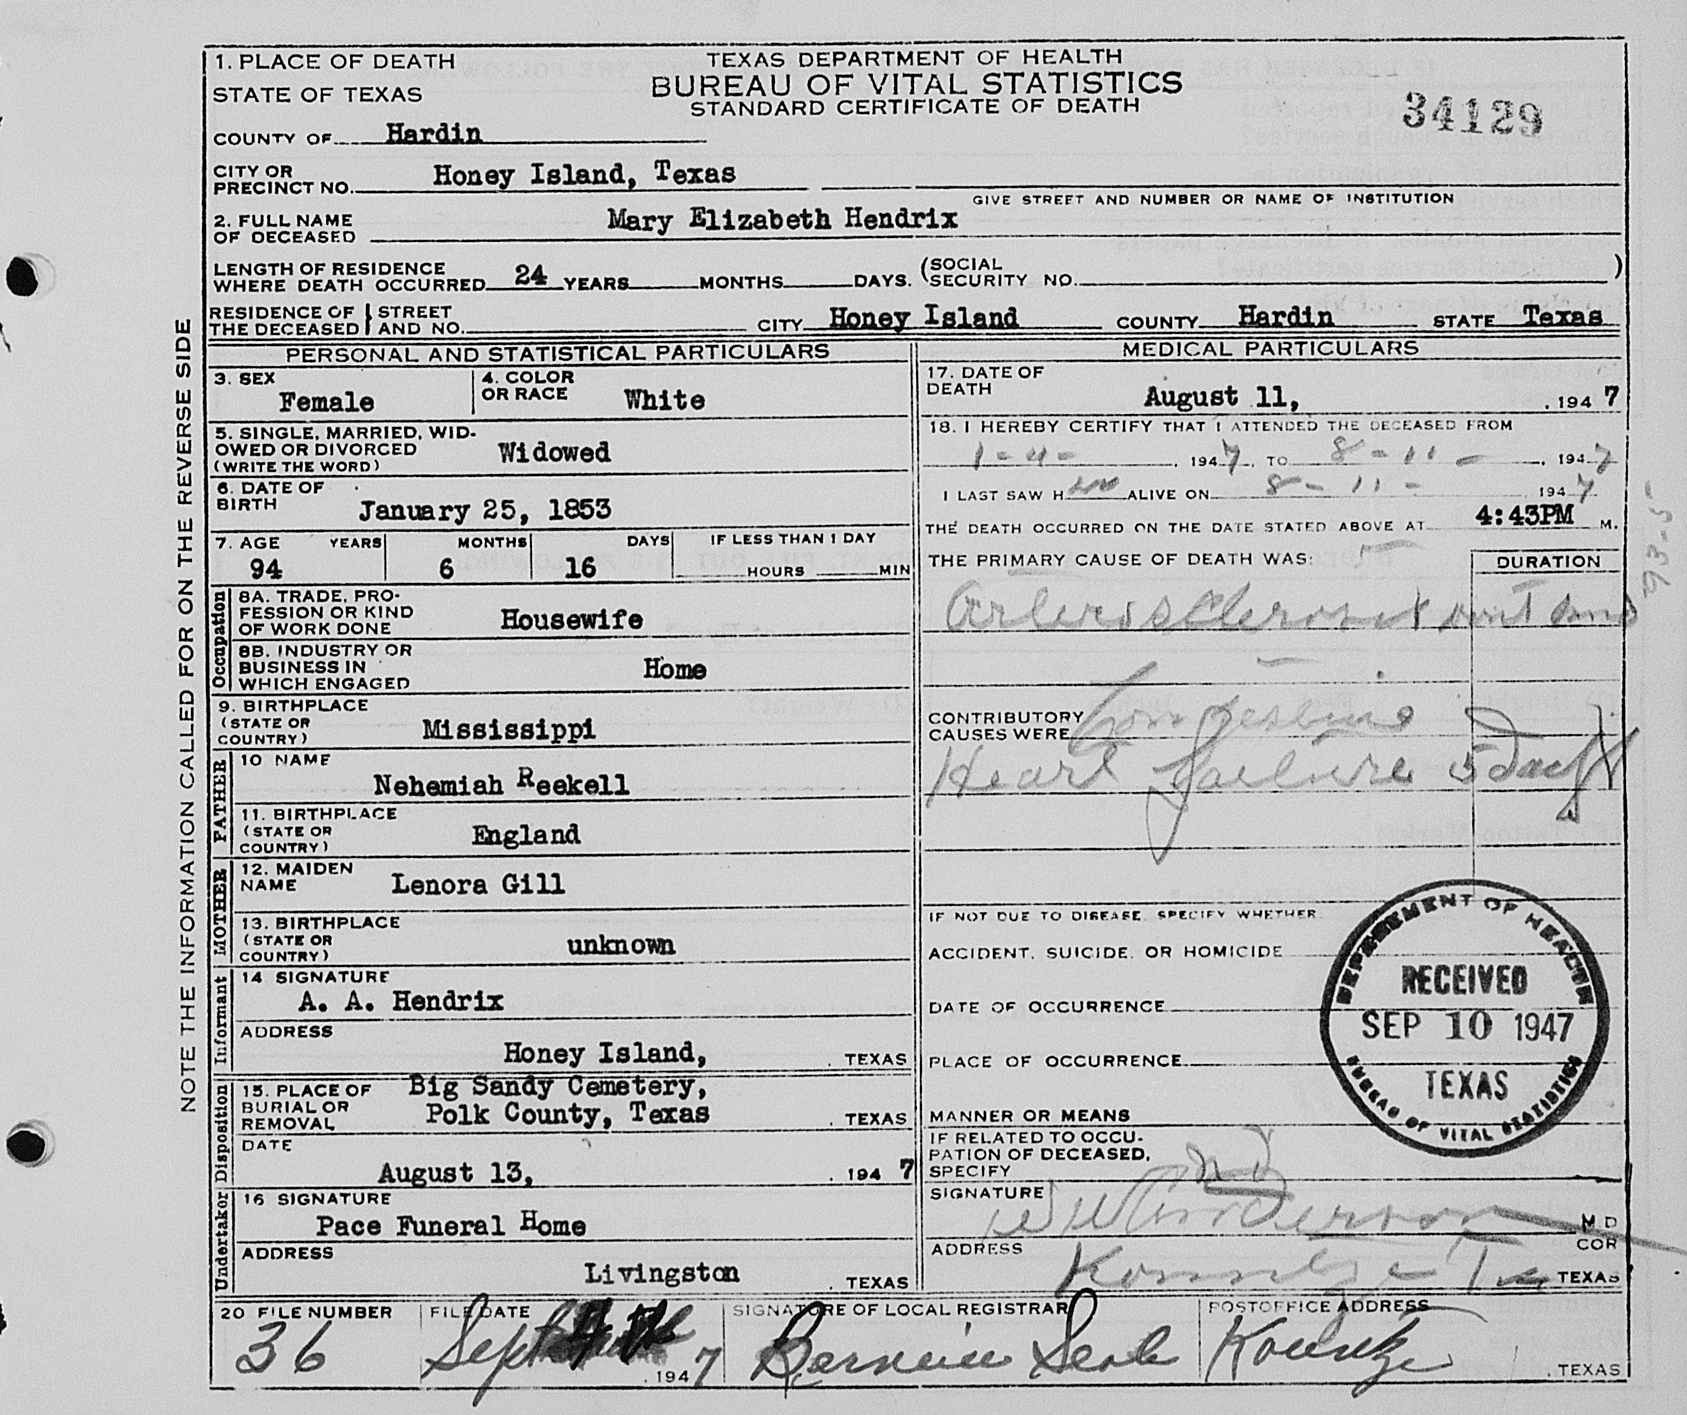 1. PLACE OF DEATH
STATE OF TEXAS
TEXAS DEPARTMENT OF HEALTH
BUREAU OF VITAL STATISTICS
STANDARD CERTIFICATE OF DEATH
34129
COUNTY OF Hardin
CITY OR PRECINCT NO. Honey Island, Texas
GIVE STREET AND NUMBER OR NAME OF INSTITUTION
2. FULL NAME OF DECEASED Mary Elizabeth Hendrix
LENGTH OF RESIDENCE WHERE DEATH OCCURRED 24 YEARS MONTHS DAYS. (SOCIAL SECURITY NO. )
RESIDENCE OF THE DECEASED STREET AND NO. CITY Honey Island COUNTY Hardin STATE Texas
NOTE THE INFORMATION CALLED FOR ON THE REVERSE SIDE
PERSONAL AND STATISTICAL PARTICULARS
3. SEX Female
4. COLOR OR RACE White
5. SINGLE, MARRIED, WID-
OWED OR DIVORCED
(WRITE THE WORD) Widowed
6. DATE OF BIRTH January 25, 1853
7. AGE YEARS MONTHS DAYS IF LESS THAN 1 DAY
94 6 16 HOURS MIN
Occupation
8A. TRADE, PRO-
FESSION OR KIND
OF WORK DONE Housewife
8B. INDUSTRY OR
BUSINESS IN
WHICH ENGAGED Home
9. BIRTHPLACE
(STATE OR
COUNTRY) Mississippi
FATHER
10 NAME
Nehemiah Reekell
11. BIRTHPLACE
(STATE OR
COUNTRY) England
MOTHER
12. MAIDEN NAME Lenora Gill
13. BIRTHPLACE
(STATE OR
COUNTRY) unknown
Informant
14 SIGNATURE
A. A. Hendrix
ADDRESS
Honey Island, TEXAS
Disposition
15. PLACE OF
BURIAL OR
REMOVAL Big Sandy Cemetery,
Polk County, Texas TEXAS
DATE
August 13, 1947
Undertaker
16 SIGNATURE
Pace Funeral Home
ADDRESS
Livingston TEXAS
MEDICAL PARTICULARS
17. DATE OF DEATH August 11, 1947
18. I HEREBY CERTIFY THAT I ATTENDED THE DECEASED FROM
1-4- 1947, TO 8-11- 1947
I LAST SAW H ALIVE ON 8-11- 1947
THE DEATH OCCURRED ON THE DATE STATED ABOVE AT 4:43PM M.
93-5
THE PRIMARY CAUSE OF DEATH WAS: DURATION
Arteriosclerosis
CONTRIBUTORY CAUSES WERE Congestive
Heart failure 5 days
IF NOT DUE TO DISEASE, SPECIFY WHETHER
ACCIDENT, SUICIDE, OR HOMICIDE
DATE OF OCCURRENCE
PLACE OF OCCURRENCE
MANNER OR MEANS
IF RELATED TO OCCU-
PATION OF DECEASED,
SPECIFY
DEPARTMENT OF HEALTH
RECEIVED
SEP 10 1947
TEXAS
BUREAU OF VITAL STATISTICS
SIGNATURE Anderson M D
COR
ADDRESS Kountze Tex TEXAS
20 FILE NUMBER 36
FILE DATE Sept 1947
SIGNATURE OF LOCAL REGISTRAR Bernein Seale
POSTOFFICE ADDRESS Kountze TEXAS